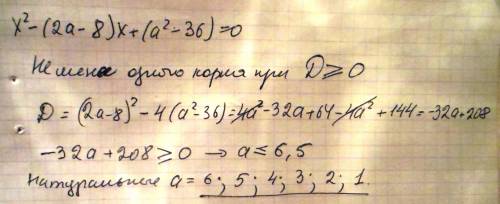 x²-(2a-8)x+(a²-36)=0
Не менее одного корня при D⩾0
D=(2a-8)²-4(a²-36)=4a²-32a+64-4a²+144=-32a+208
-32a+208⩾0 → a≤6,5
Натуральные a=6; 5; 4; 3; 2; 1.